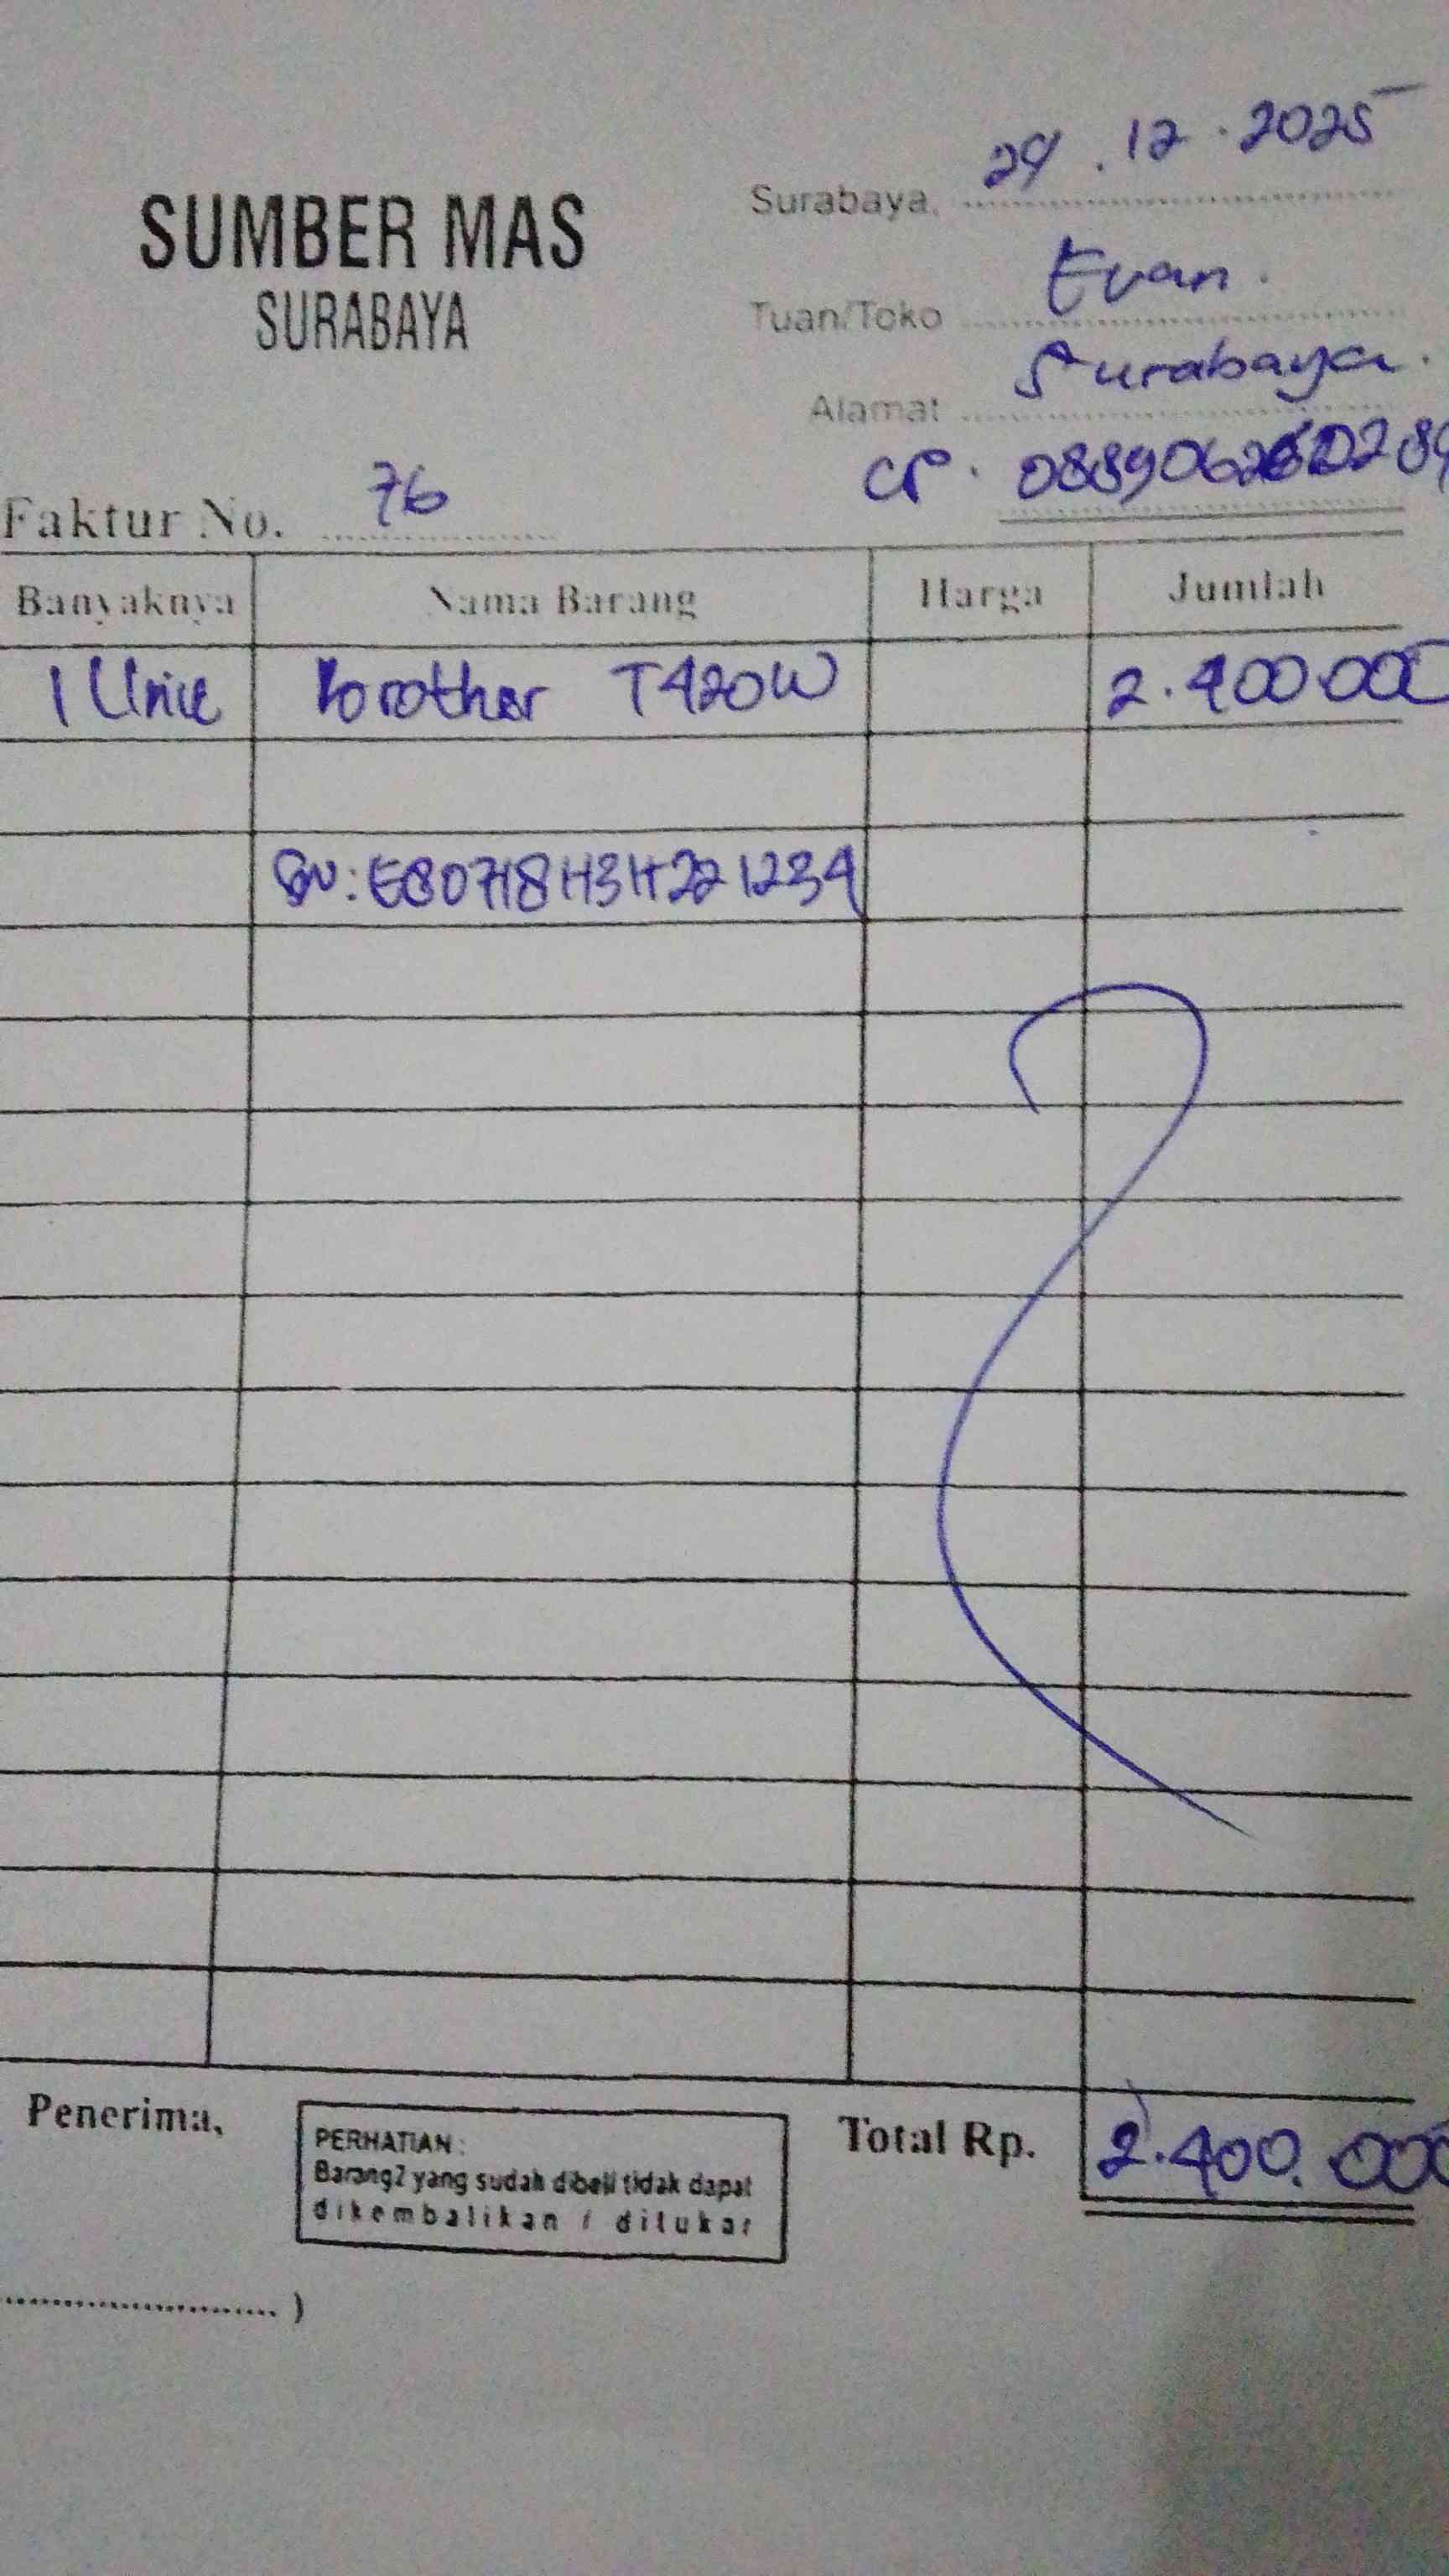 SUMBER MAS
SURABAYA
Surabaya, 24 . 12 . 2025
Tuan/Toko Evan.
Alamat Surabaya.
CP.
Faktur No. 76
Banyaknya Nama Barang Harga Jumlah
1 Unit brother T420W 2.400.000
SN:
Penerima,
PERHATIAN:
Barang2 yang sudah dibeli tidak dapat
dikembalikan / ditukar
Total Rp. 2.400.000